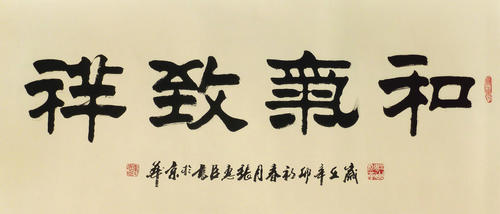 和氣致祥
歲在辛卯初春月張惠臣書於京華